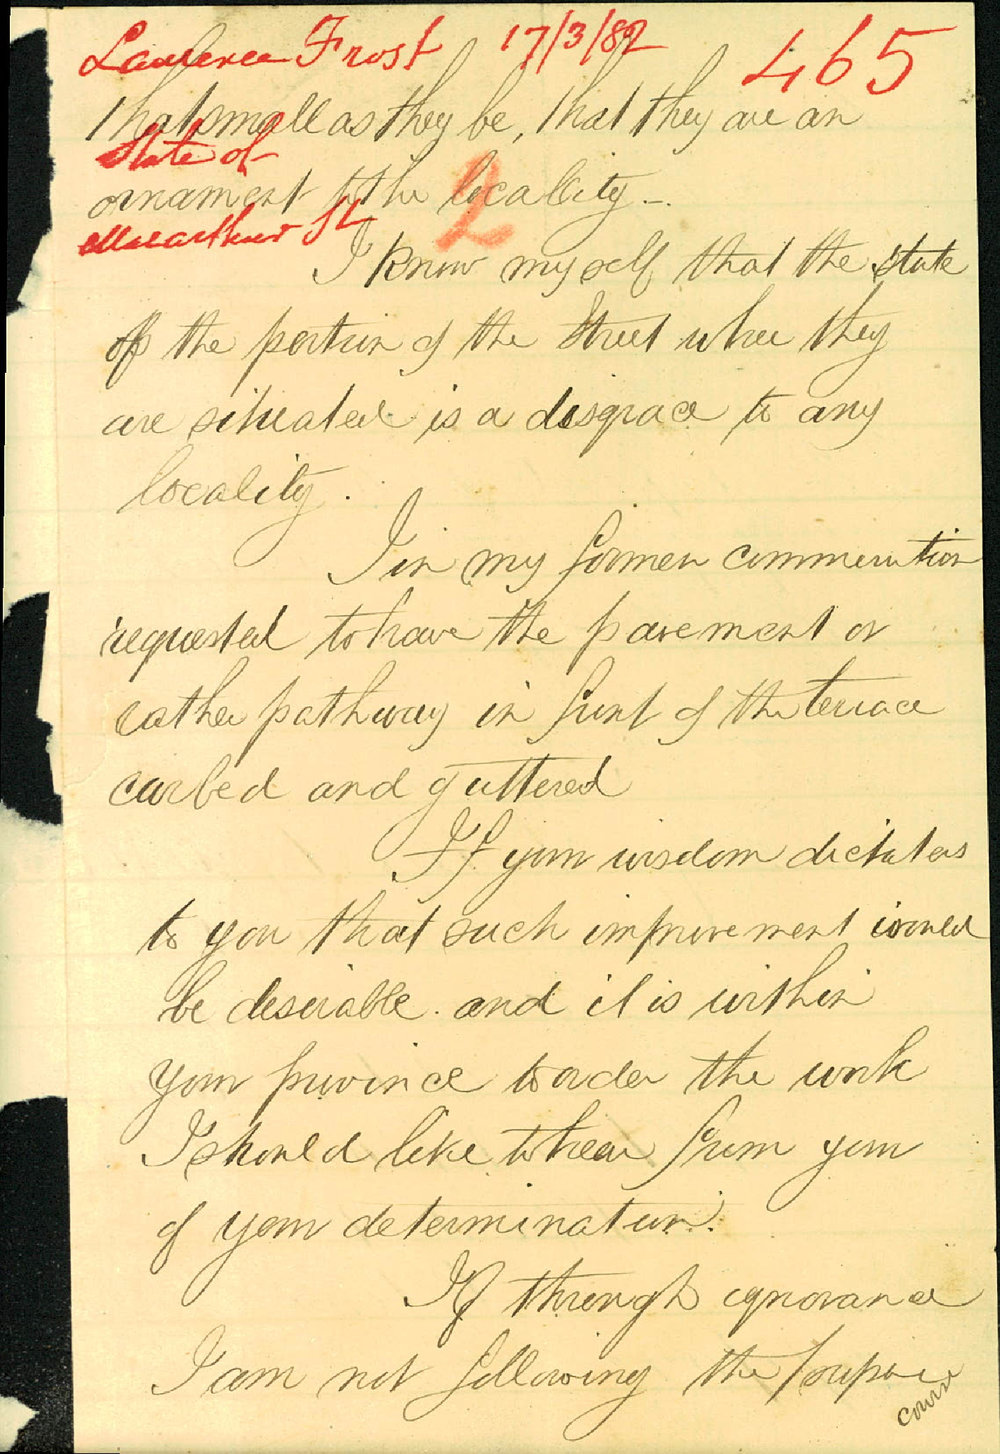 Laurence Frost 17/3/82 465
that small as they be, that they are an
State of
ornament to the locality –
2
Macarthur St
I know myself that the state
of the portion of the Street where they
are situated is a disgrace to any
locality.
I in my former
requested to have the pavement or
rather pathway in front of the terrace
curbed and guttered
If your wisdom dictates
to you that such improvement would
be desirable. and it is within
your province to order the work
I should like to hear from you
of your determination.
If through ignorance
I am not following the proper
course